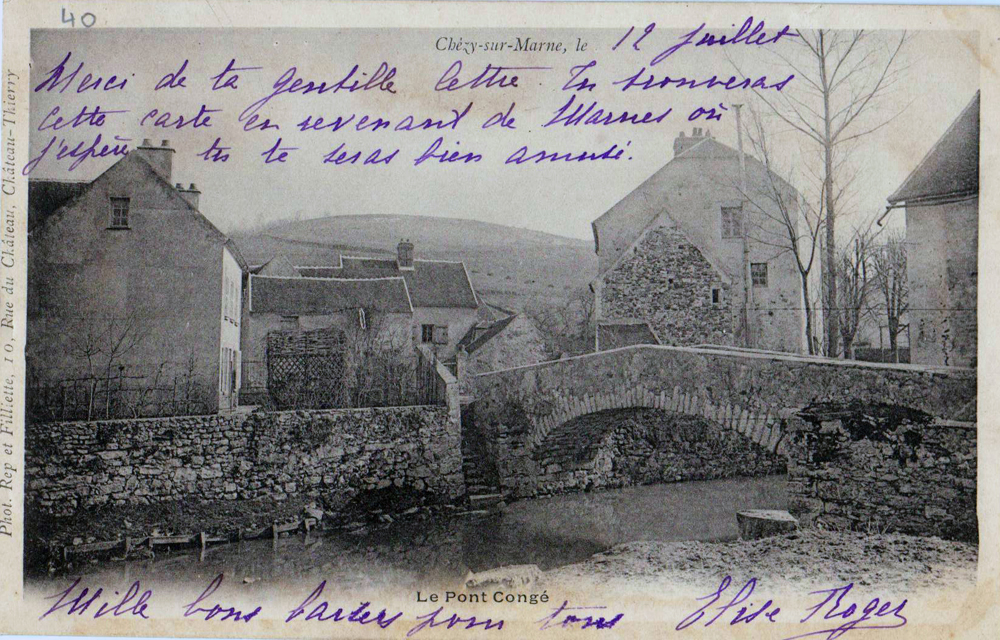 40
Chézy-sur-Marne, le 12 juillet
Merci de ta gentille lettre. Tu trouveras
cette carte en revenant de Marnes où
j'espère tu te seras bien amusé.
Phot. Rep et Filliette, 10, Rue du Château, Château-Thierry
Le Pont Congé
Mille bons baisers pour tous Elise Roger